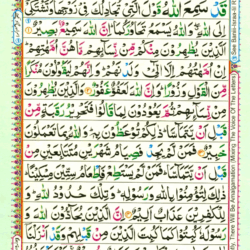 قَدْ سَمِعَ اللّٰهُ قَوْلَ الَّتِیْ تُجَادِلُكَ فِیْ زَوْجِهَا وَتَشْتَكِیْۤ
اِلَی اللّٰهِ وَاللّٰهُ یَسْمَعُ تَحَاوُرَكُمَا اِنَّ اللّٰهَ سَمِیْعٌۢ بَصِیْرٌ
اَلَّذِیْنَ یُظٰهِرُوْنَ مِنْكُمْ مِّنْ نِّسَآئِهِمْ مَّا هُنَّ اُمَّهٰتِهِمْ
اِنْ اُمَّهٰتُهُمْ اِلَّا الّٰٓـِٔیْ وَلَدْنَهُمْ وَاِنَّهُمْ لَیَقُوْلُوْنَ مُنْكَرًا
مِّنَ الْقَوْلِ وَزُوْرًا وَاِنَّ اللّٰهَ لَعَفُوٌّ غَفُوْرٌ وَالَّذِیْنَ یُظٰهِرُوْنَ
مِنْ نِّسَآئِهِمْ ثُمَّ یَعُوْدُوْنَ لِمَا قَالُوْا فَتَحْرِیْرُ رَقَبَةٍ مِّنْ
قَبْلِ اَنْ یَّتَمَآسَّا ذٰلِكُمْ تُوْعَظُوْنَ بِهٖ وَاللّٰهُ بِمَا تَعْمَلُوْنَ
خَبِیْرٌ فَمَنْ لَّمْ یَجِدْ فَصِیَامُ شَهْرَیْنِ مُتَتَابِعَیْنِ مِنْ
قَبْلِ اَنْ یَّتَمَآسَّا فَمَنْ لَّمْ یَسْتَطِعْ فَاِطْعَامُ سِتِّیْنَ مِسْكِیْنًا
ذٰلِكَ لِتُؤْمِنُوْا بِاللّٰهِ وَرَسُوْلِهٖ وَتِلْكَ حُدُوْدُ اللّٰهِ وَ
لِلْكٰفِرِیْنَ عَذَابٌ اَلِیْمٌ اِنَّ الَّذِیْنَ یُحَآدُّوْنَ اللّٰهَ وَ
رَسُوْلَهٗ كُبِتُوْا كَمَا كُبِتَ الَّذِیْنَ مِنْ قَبْلِهِمْ وَقَدْ اَنْزَلْنَاۤ
There Will Be Amalgamation (Mixing The Voice Of The Letter)